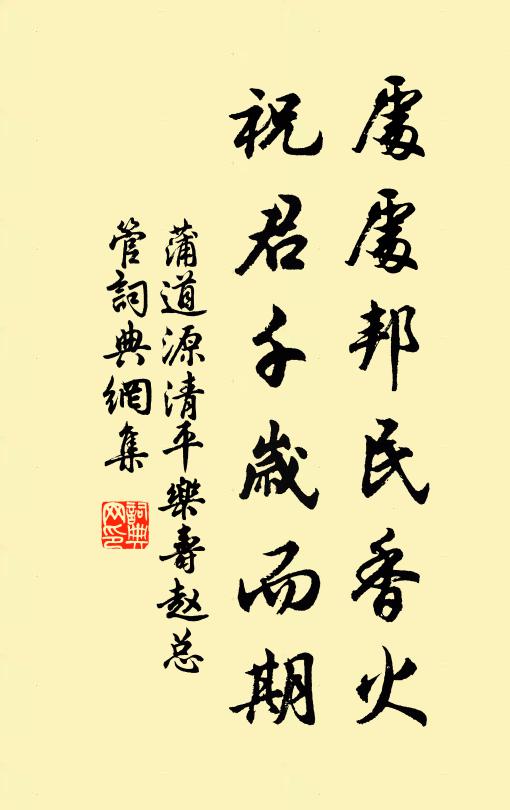 處處邦民香火
祝君千歲而期
蒲道源清平樂壽赵总
管詞典網集
詞典
网印